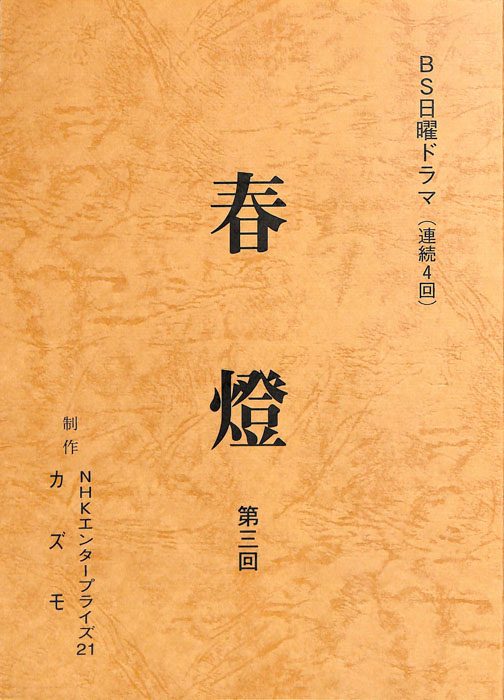 BS日曜ドラマ（連続4回）
春燈
第三回
制作
NHKエンタープライズ21
カズモ